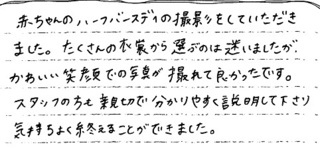 赤ちゃんのハーフバースデイの撮影をしていただき
ました。たくさんの衣裳から選ぶのは迷いましたが、
かわいい笑顔での写真が撮れて良かったです。
スタッフの方も親切で分かりやすく説明して下さり
気持ちよく終えることができました。